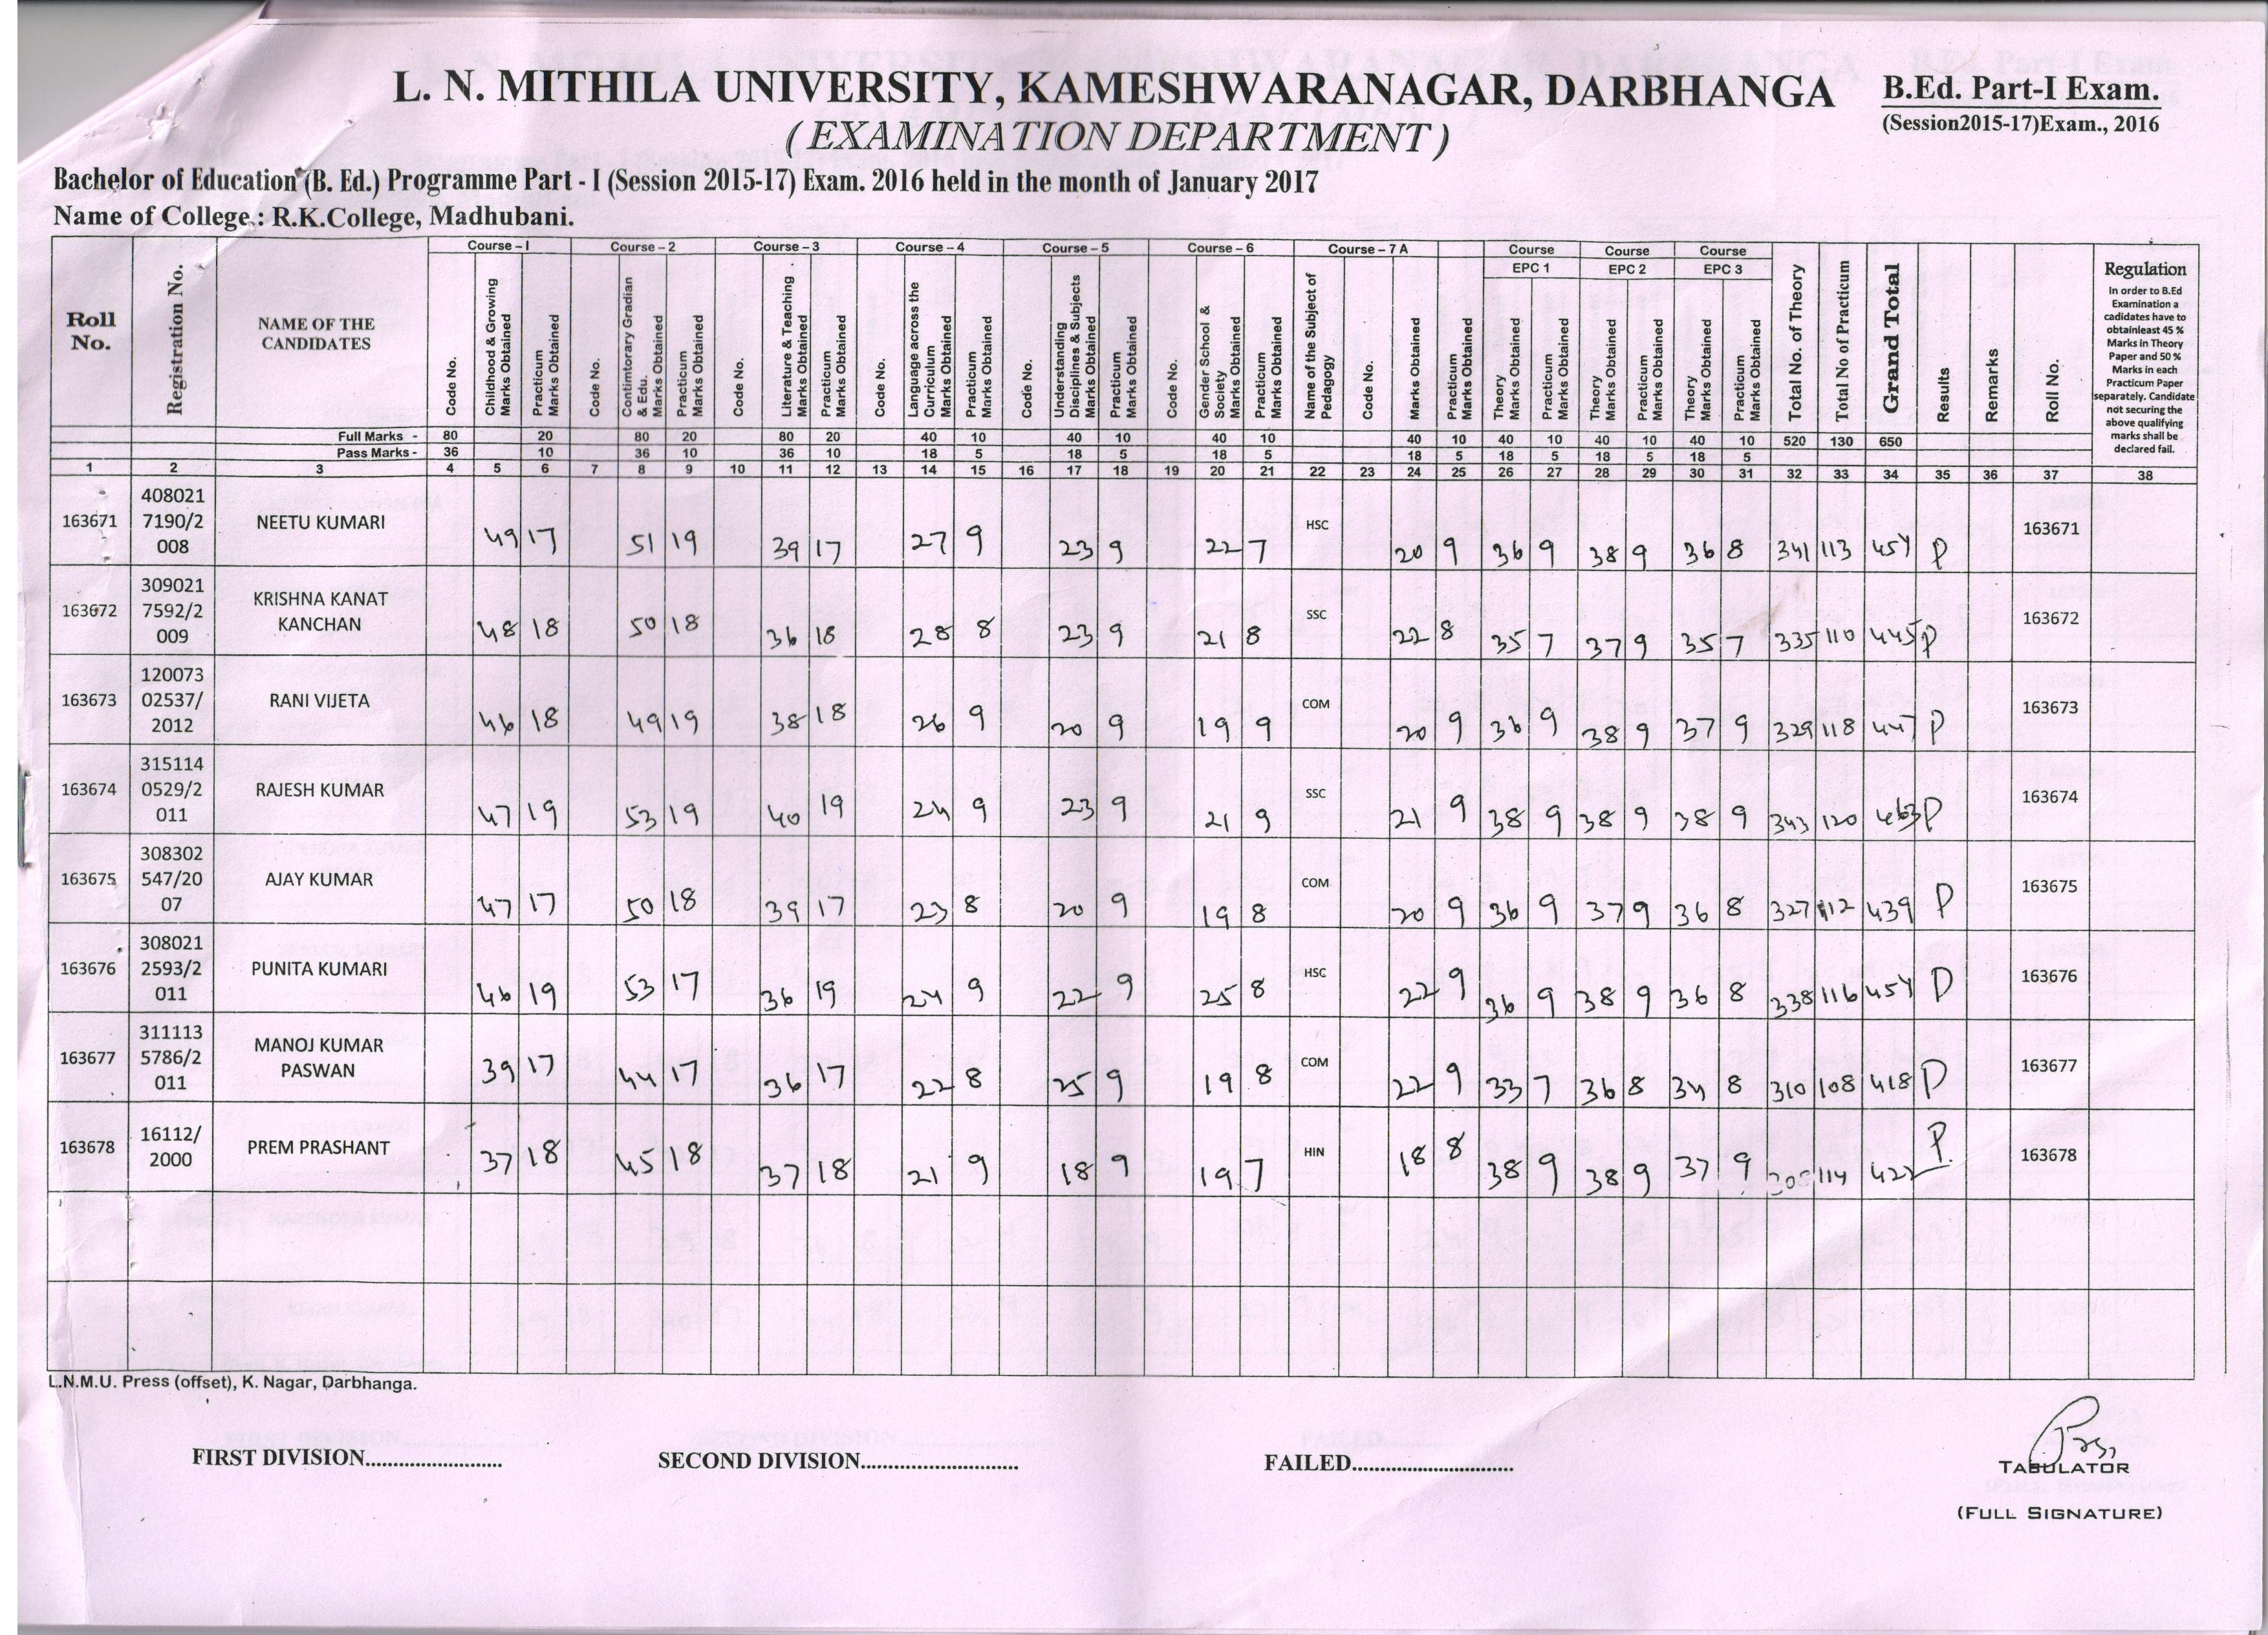 L. N. MITHILA UNIVERSITY, KAMESHWARANAGAR, DARBHANGA
B.Ed. Part-I Exam.
(Session2015-17)Exam., 2016
( EXAMINATION DEPARTMENT )
Bachelor of Education (B. Ed.) Programme Part - I (Session 2015-17) Exam. 2016 held in the month of January 2017
Name of College : R.K.College, Madhubani.
Course – I Course – 2 Course – 3 Course – 4 Course – 5 Course – 6 Course – 7 A Course Course Course
EPC 1 EPC 2 EPC 3
Roll No.
Registration No.
NAME OF THE CANDIDATES
Code No.
Childhood & Growing Marks Obtained
Practicum Marks Obtained
Code No.
Contimtorary Gradian & Edu. Marks Obtained
Practicum Marks Obtained
Code No.
Literature & Teaching Marks Obtained
Practicum Marks Obtained
Code No.
Language across the Curriculum Marks Obtained
Practicum Marks Obtained
Code No.
Understanding Disciplines & Subjects Marks Obtained
Practicum Marks Obtained
Code No.
Gender School & Society Marks Obtained
Practicum Marks Obtained
Name of the Subject of Pedagogy
Code No.
Marks Obtained
Practicum Marks Obtained
Theory Marks Obtained
Practicum Marks Obtained
Theory Marks Obtained
Practicum Marks Obtained
Theory Marks Obtained
Practicum Marks Obtained
Total No. of Theory
Total No of Practicum
Grand Total
Results
Remarks
Roll No.
Regulation
In order to B.Ed
Examination a
cadidates have to
obtainleast 45 %
Marks in Theory
Paper and 50 %
Marks in each
Practicum Paper
separately. Candidate
not securing the
above qualifying
marks shall be
declared fail.
Full Marks - 80 20 80 20 80 20 40 10 40 10 40 10 40 10 40 10 40 10 40 10 520 130 650
Pass Marks - 36 10 36 10 36 10 18 5 18 5 18 5 18 5 18 5 18 5 18 5
1 2 3 4 5 6 7 8 9 10 11 12 13 14 15 16 17 18 19 20 21 22 23 24 25 26 27 28 29 30 31 32 33 34 35 36 37 38
163671 4080217190/2008 NEETU KUMARI 49 17 51 19 39 17 27 9 23 9 22 7 HSC 20 9 36 9 38 9 36 8 341 113 454 P 163671
163672 3090217592/2009 KRISHNA KANAT KANCHAN 48 18 50 18 36 18 28 8 23 9 21 8 SSC 22 8 35 7 37 9 35 7 335 110 445 P 163672
163673 12007302537/2012 RANI VIJETA 46 18 49 19 38 18 26 9 20 9 19 9 COM 20 9 36 9 38 9 37 9 329 118 447 P 163673
163674 3151140529/2011 RAJESH KUMAR 47 19 53 19 40 19 24 9 23 9 21 9 SSC 21 9 38 9 38 9 38 9 343 120 463 P 163674
163675 308302547/2007 AJAY KUMAR 47 17 50 18 39 17 23 8 20 9 19 8 COM 20 9 36 9 37 9 36 8 327 112 439 P 163675
163676 3080212593/2011 PUNITA KUMARI 46 19 53 17 36 19 24 9 22 9 25 8 HSC 22 9 36 9 38 9 36 8 338 116 454 P 163676
163677 3111135786/2011 MANOJ KUMAR PASWAN 39 17 44 17 36 17 22 8 25 9 19 8 COM 22 9 33 7 36 8 34 8 310 108 418 P 163677
163678 16112/2000 PREM PRASHANT 37 18 45 18 37 18 21 9 18 9 19 7 HIN 18 8 38 9 38 9 37 9 114 422 P. 163678
L.N.M.U. Press (offset), K. Nagar, Darbhanga.
FIRST DIVISION......................... SECOND DIVISION............................ FAILED.............................
TABULATOR
(FULL SIGNATURE)